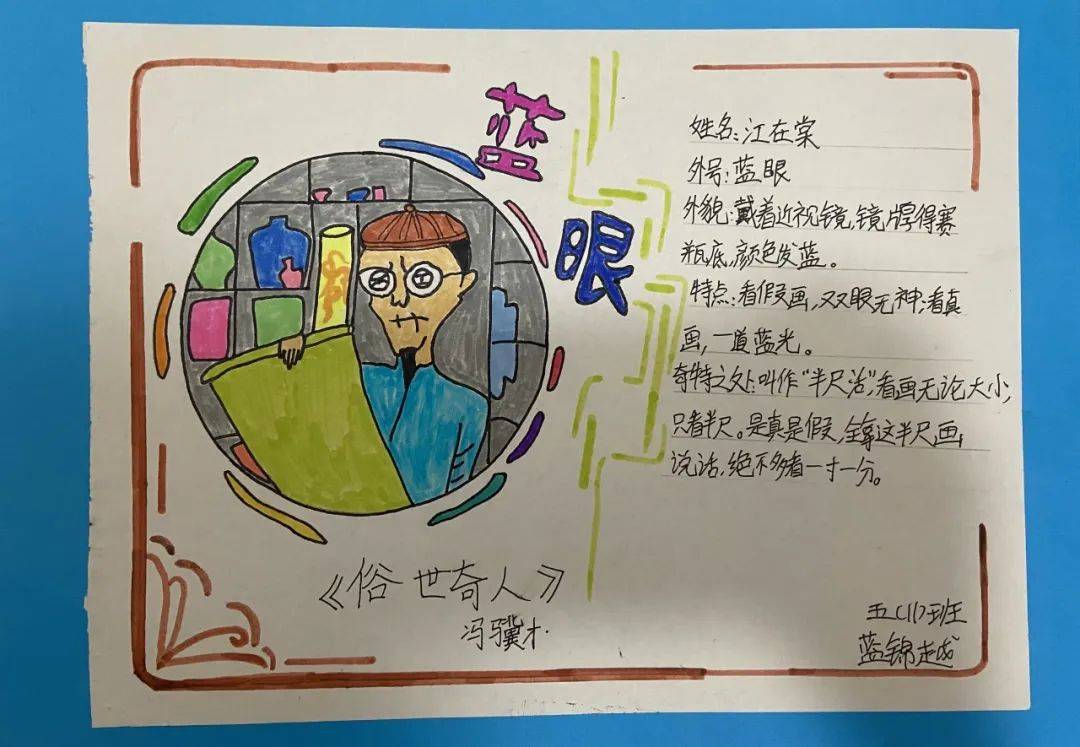 蓝
眼
姓名:江在棠
外号:蓝眼
外貌:戴着近视镜,镜片厚得赛
瓶底,颜色发蓝。
特点:看假画,双眼无神;看真
画,一道蓝光。
奇特之处:叫作“半尺活”,看画无论大小,
只看半尺。是真是假,全拿这半尺画
说话,绝不多看一寸一分。
《俗世奇人》
冯骥才.
五(11)班
蓝锦越